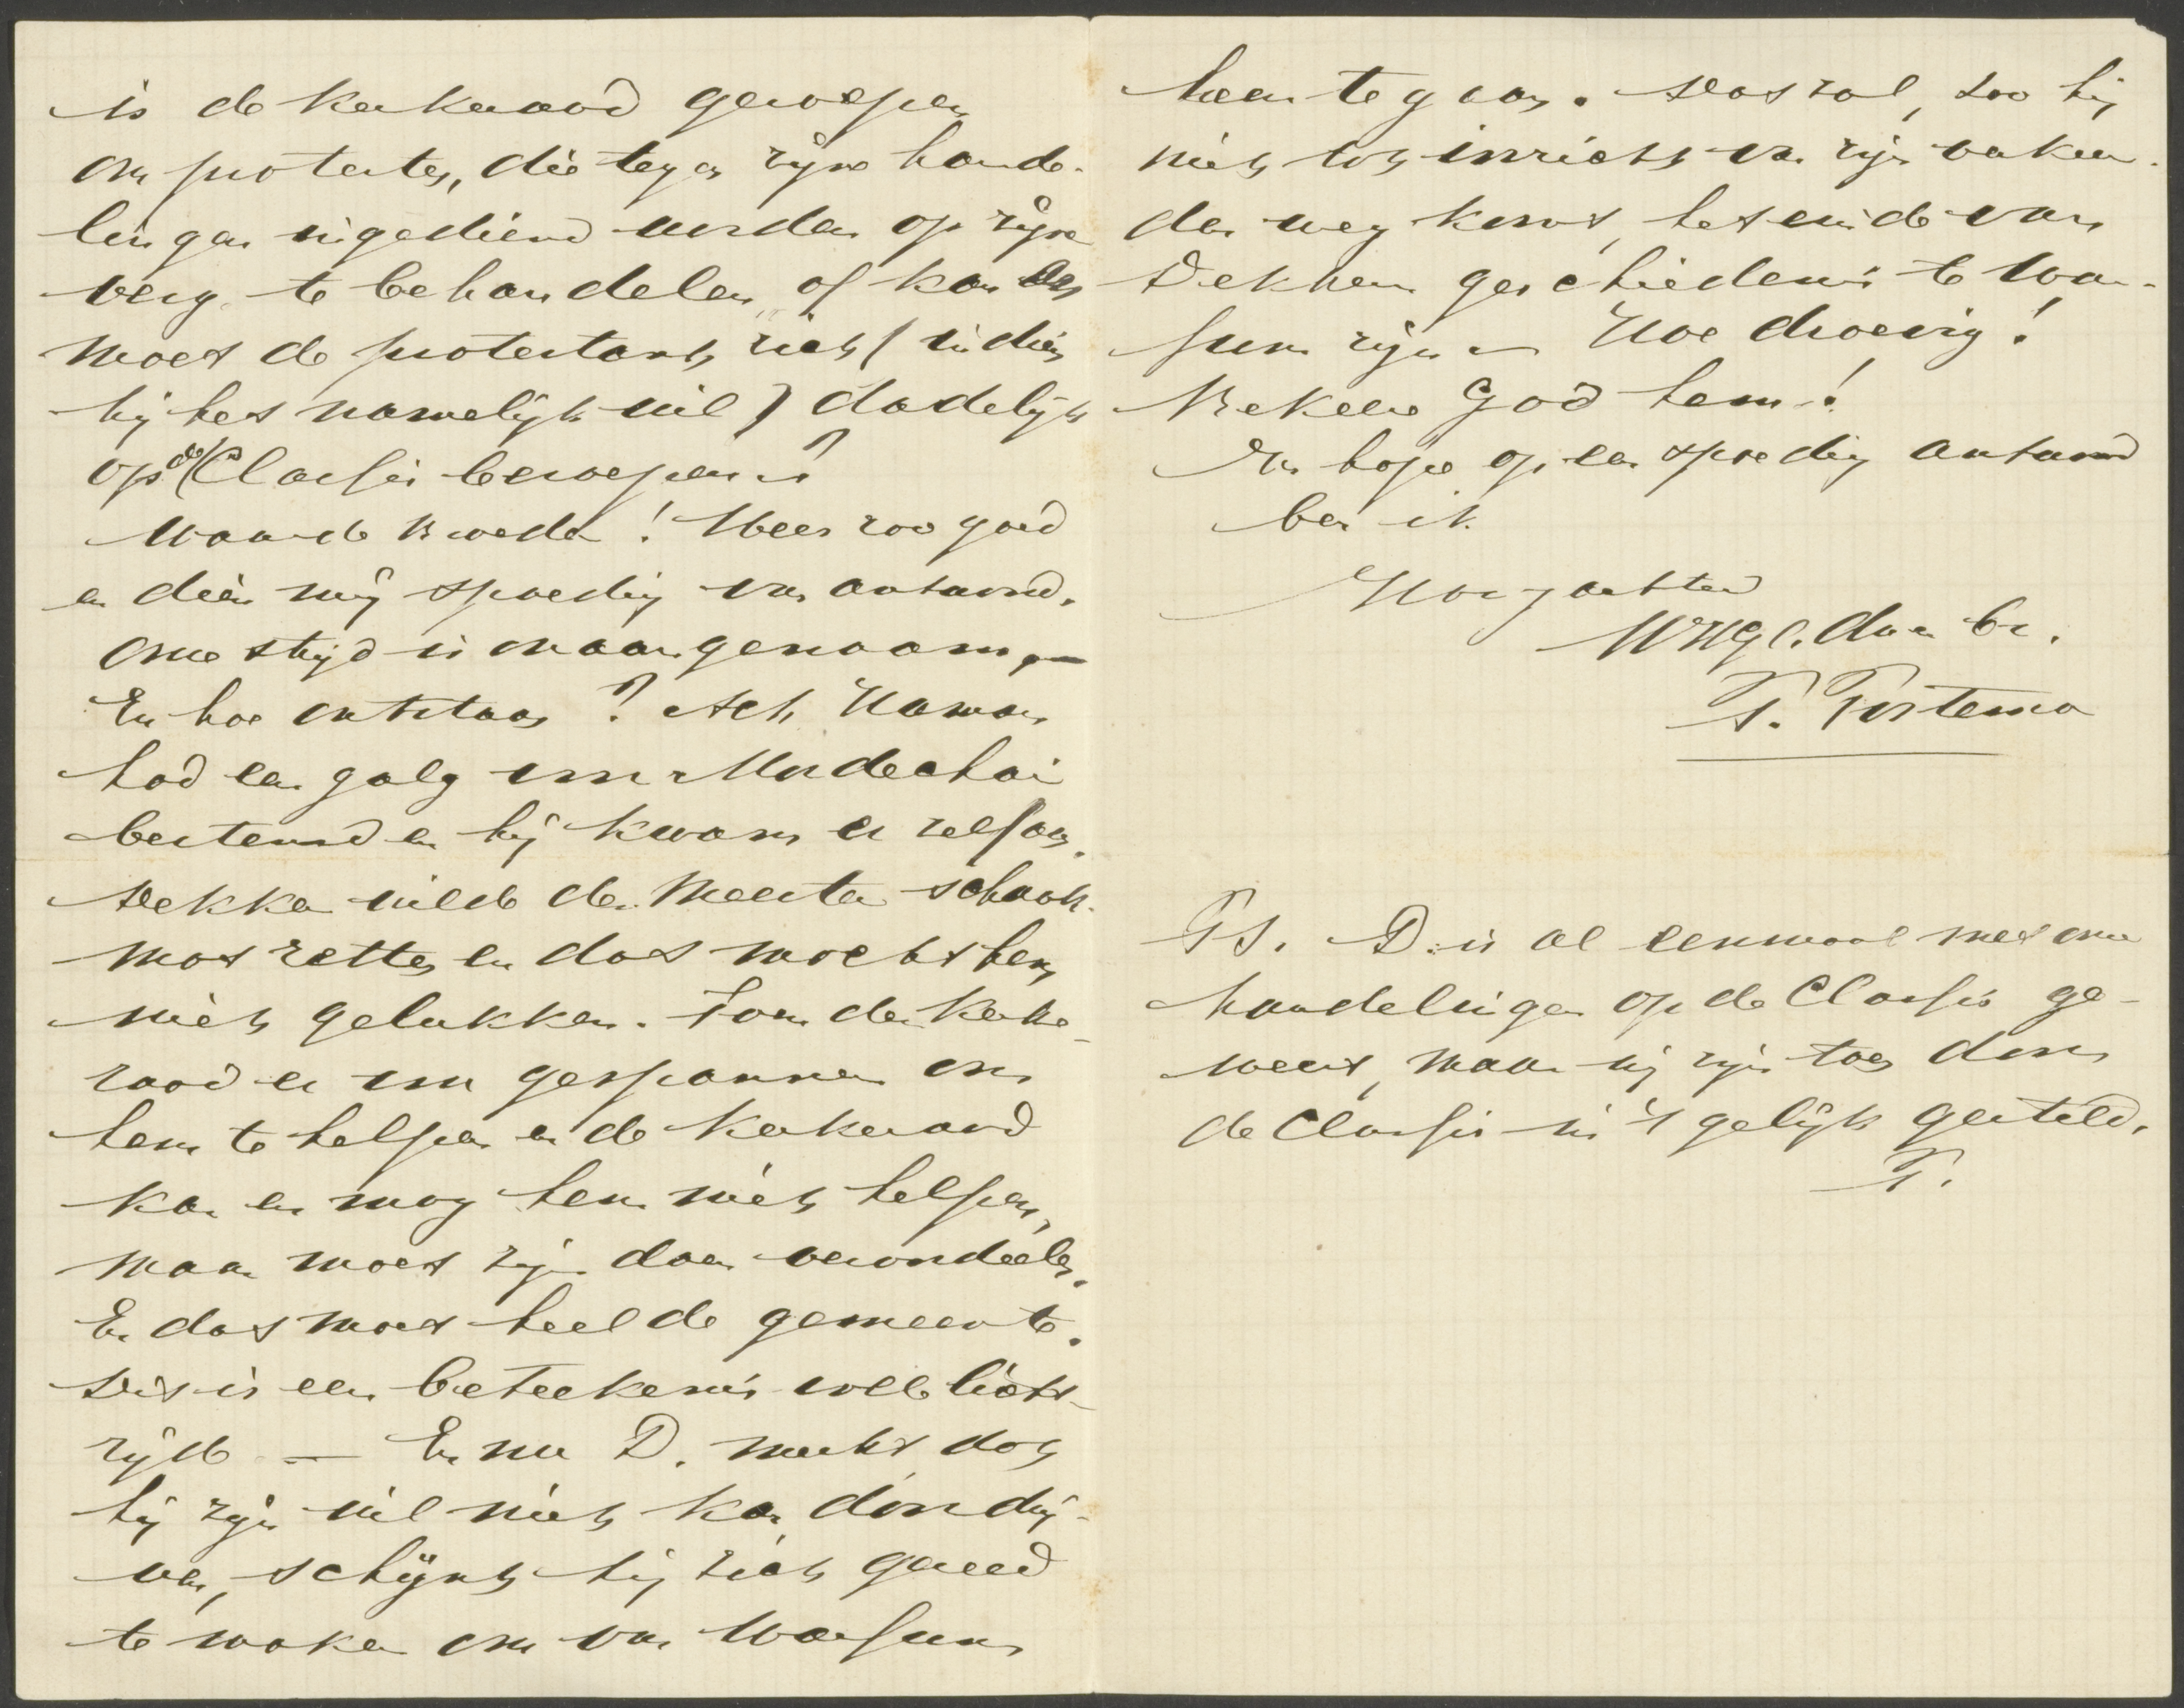 is de kerkeraad geroepen
om protesten, die tegen zijne hande-
lingen ingediend worden op zijne
verg. te behandelen, of kan en
moet de protestant zich (indien
hij het namelijk wil) dadelijk
op de Classis beroepen?
Waarde Broeder! Wees zoo goed
en dien mij spoedig van antwoord.
Onze strijd is onaangenaam,
En hoe ontstaan? Ach Haman
had een galg voor Mordechai
bestemd en hij kwam er zelf aan.
Dekker wilde den Meester schaak-
mat zetten en dat mocht hem
niet gelukken. Toen de kerke-
raad er voor gespannen om
hem te helpen en de kerkeraad
kan en mag hem niet helpen,
maar moet zijn doen veroordeelen.
En dat moet heel de gemeente.
Dit is een beteekenis volle licht-
zijde — En nu D. merkt dat
hij zijn wil niet kan doordrij-
ven, schijnt hij zich gereed
te maken om van Warfum
heen te gaan. Dat zal, zoo hij
niet tot inzicht van zijn verkeer-
den weg komt, het einde van
Dekkers geschiedenis te War-
fum zijn — Hoe droevig!
Bekeere God hem!
In hope op een spoedig antwoord
ben ik
Hoogachtend
UWEgl. dw. en br.
T. Tostema
PS. D. is al eenmaal met onze
handelingen op de Classis ge-
weest, maar wij zijn toen door
de Classis in 't gelijk gesteld.
T.